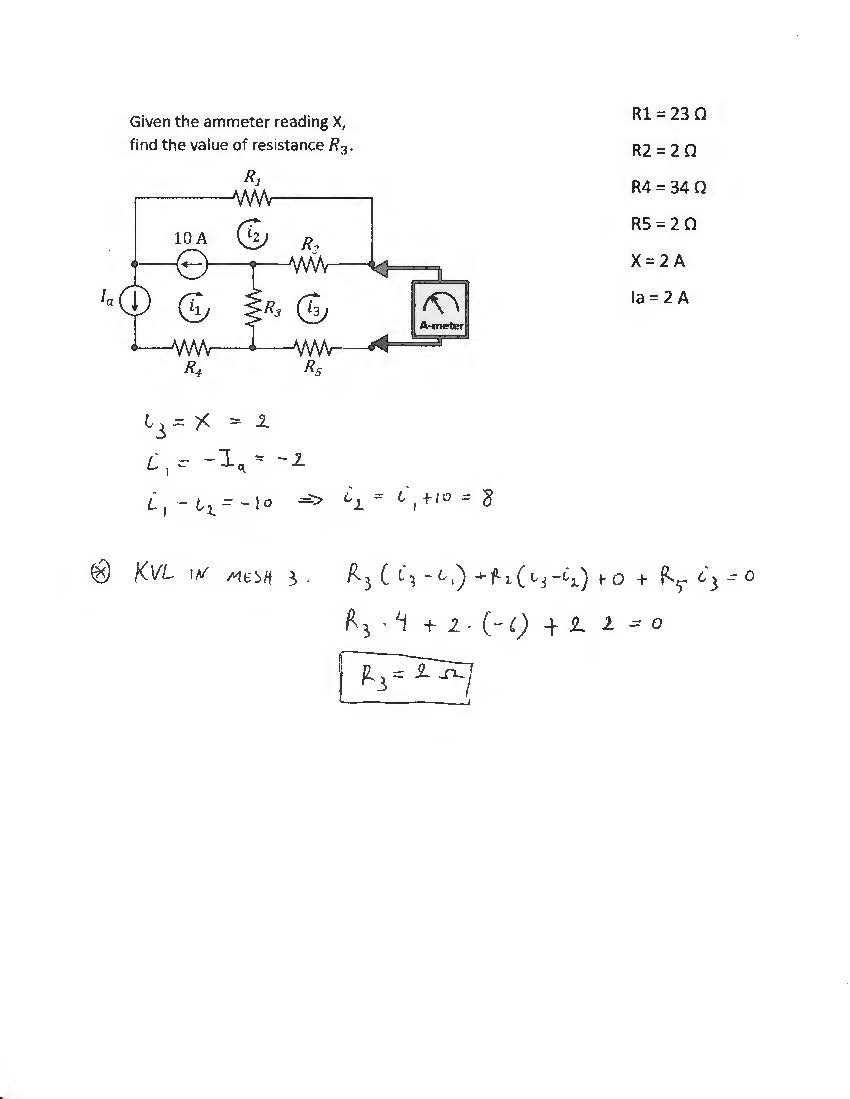 Given the ammeter reading X,
find the value of resistance R₃.
R1 = 23 Ω
R2 = 2 Ω
R4 = 34 Ω
R5 = 2 Ω
X = 2 A
Ia = 2 A
R₁
10 A
i₂
R₂
Iₐ
i₁
R₃
i₃
A-meter
R₄
R₅
i₃ = X = 2
i₁ = -Iₐ = -2
i₁ - i₂ = -10 ⇒ i₂ = i₁ + 10 = 8
⊛ KVL IN MESH 3. R₃ (i₃ - i₁) + R₂ (i₃ - i₂) + 0 + R₅ i₃ = 0
R₃ · 4 + 2 · (-6) + 2 2 = 0
R₃ = 2 Ω